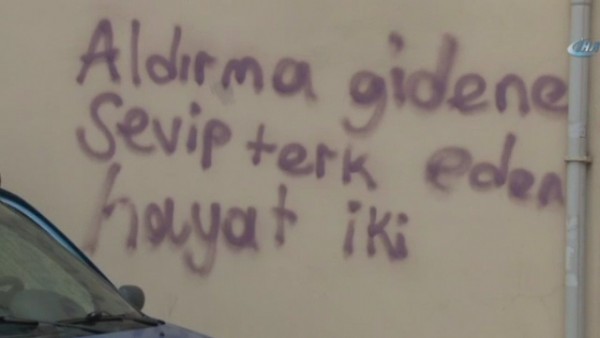 Aldırma gidene
Sevip terk eden
hayat iki
İHA